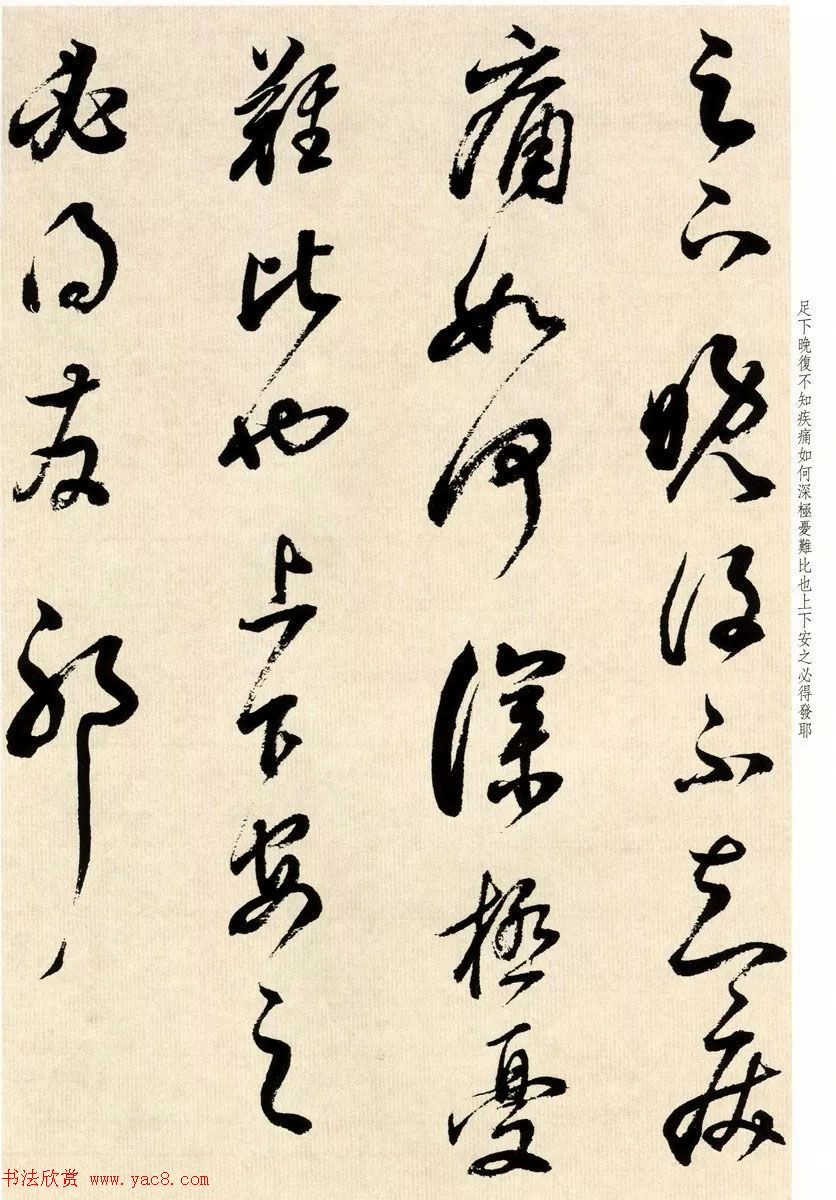 足下晚復不知疾
痛如何深極憂
難比也上下安之
必得發耶
足下晚復不知疾痛如何深極憂難比也上下安之必得發耶
书法欣赏 www.yac8.com